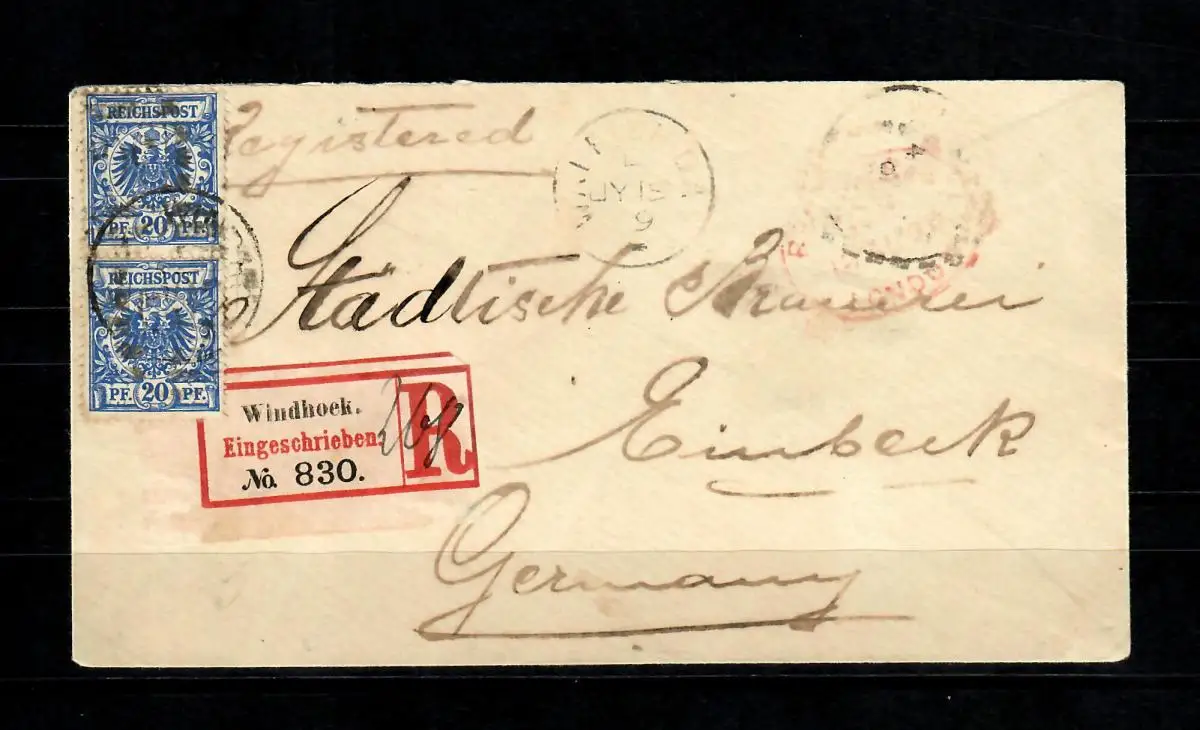 REICHSPOST
PF. 20 PF.
REICHSPOST
PF. 20 PF.
Registered
JY 15
9
Städtische Brauerei
Windhoek.
Eingeschrieben.
No. 830.
R
Einbeck
Germany